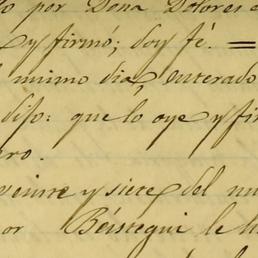 o por Doña Dolores
y firmó; doy fé. =
mismo dia, enterado
dijo: que lo oye y fir
ro.
veinte y siete del m
or Béistegui le h